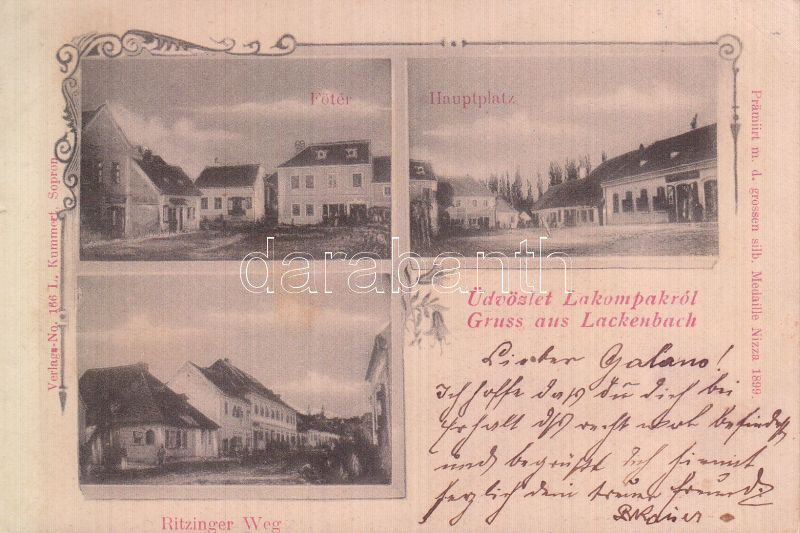 Főtér
Hauptplatz
Verlags-No. 166 L. Kummert, Sopron
Prämiirt m. d. grossen silb. Medaille Nizza 1899.
darabanth
Üdvözlet Lakompakról
Gruss aus Lackenbach
Lieber Galano!
Ich hoffe dass du dich bei
Erhalt dss recht wol befindest
und begrüßt dich hiermit
herzlich dein treuer Freund
BKaiser
Ritzinger Weg